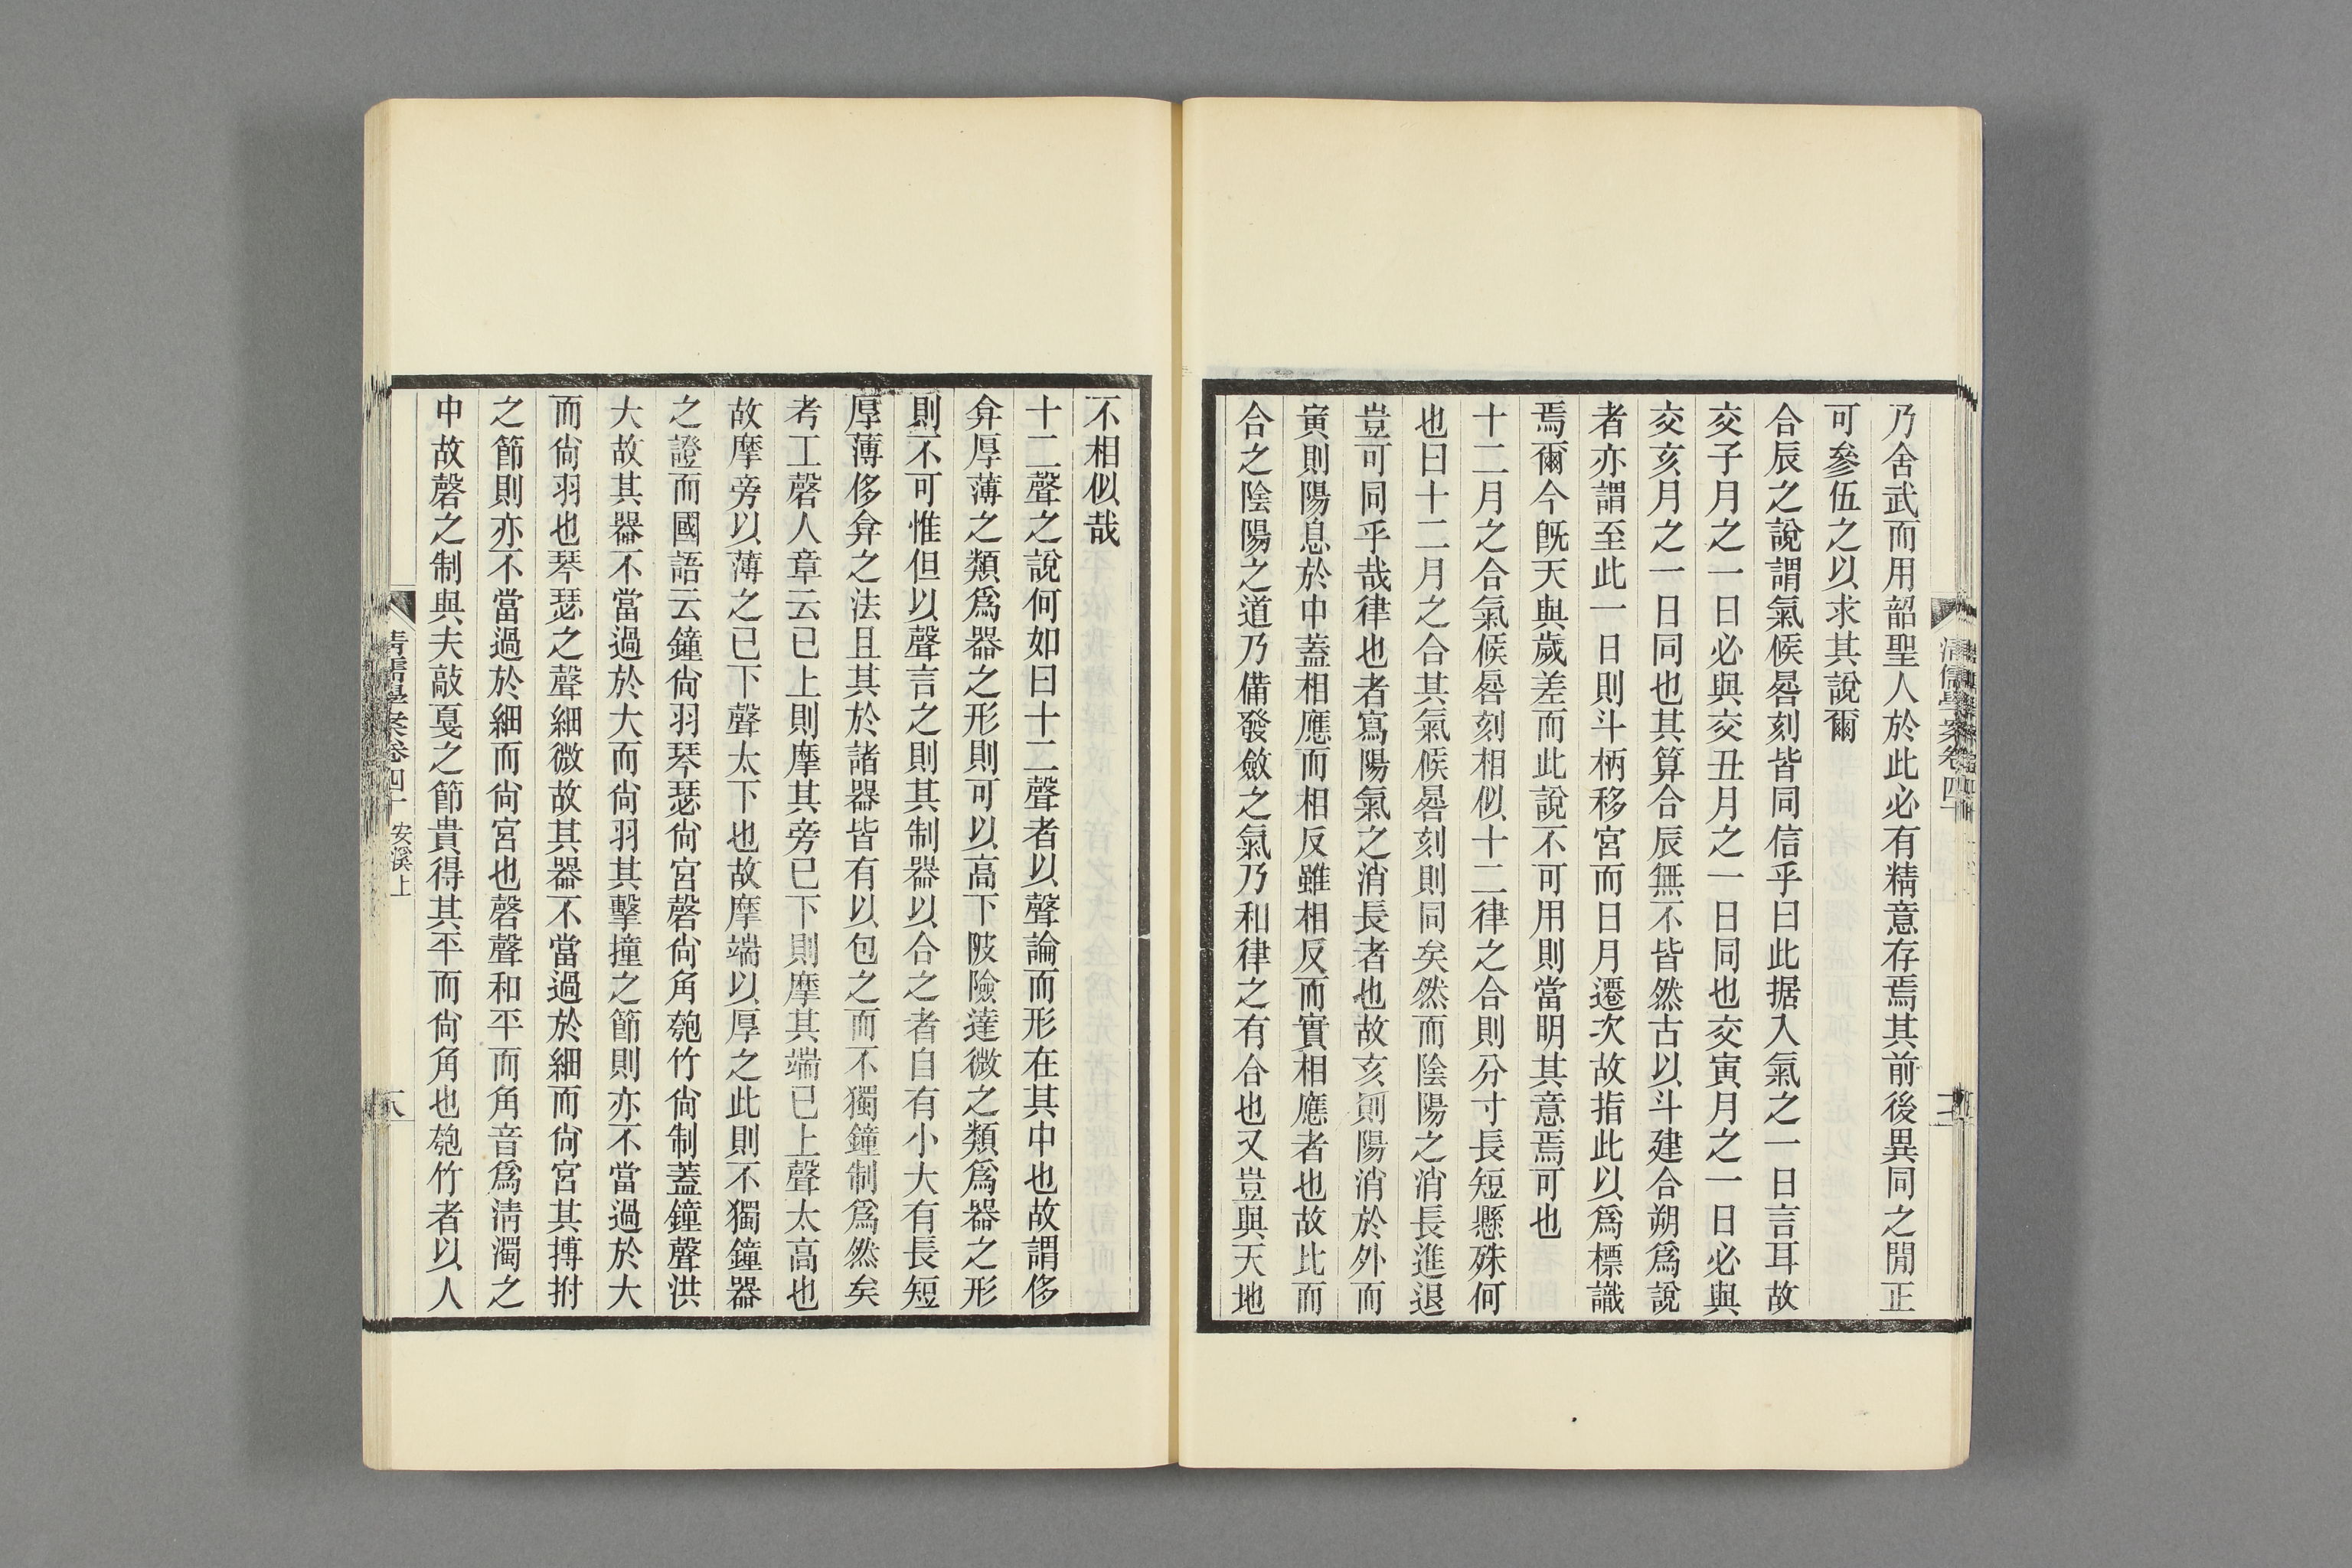 乃舍武而用韶聖人於此必有精意存焉其前後異同之閒正
可參伍之以求其說爾
合辰之說謂氣候晷刻皆同信乎曰此据入氣之一日言耳故
交子月之一日必與交丑月之一日同也交寅月之一日必與
交亥月之一日同也其算合辰無不皆然古以斗建合朔爲說
者亦謂至此一日則斗柄移宮而日月遷次故指此以爲標識
焉爾今旣天與歲差而此說不可用則當明其意焉可也
十二月之合氣候晷刻相似十二律之合則分寸長短懸殊何
也曰十二月之合其氣候晷刻則同矣然而陰陽之消長進退
豈可同乎哉律也者寫陽氣之消長者也故亥則陽消於外而
寅則陽息於中蓋相應而相反雖相反而實相應者也故比而
合之陰陽之道乃備發斂之氣乃和律之有合也又豈與天地
不相似哉
十二聲之說何如曰十二聲者以聲論而形在其中也故謂侈
弇厚薄之類爲器之形則可以高下陂險達微之類爲器之形
則不可惟但以聲言之則其制器以合之者自有小大有長短
厚薄侈弇之法且其於諸器皆有以包之而不獨鐘制爲然矣
考工磬人章云已上則摩其旁已下則摩其端已上聲太高也
故摩旁以薄之已下聲太下也故摩端以厚之此則不獨鐘器
之證而國語云鐘尙羽琴瑟尙宮磬尙角匏竹尙制蓋鐘聲洪
大故其器不當過於大而尙羽其擊撞之節則亦不當過於大
而尙羽也琴瑟之聲細微故其器不當過於細而尙宮其搏拊
之節則亦不當過於細而尙宮也磬聲和平而角音爲淸濁之
中故磬之制與夫敲戛之節貴得其平而尙角也匏竹者以人
清儒學案卷四十 安溪上
八